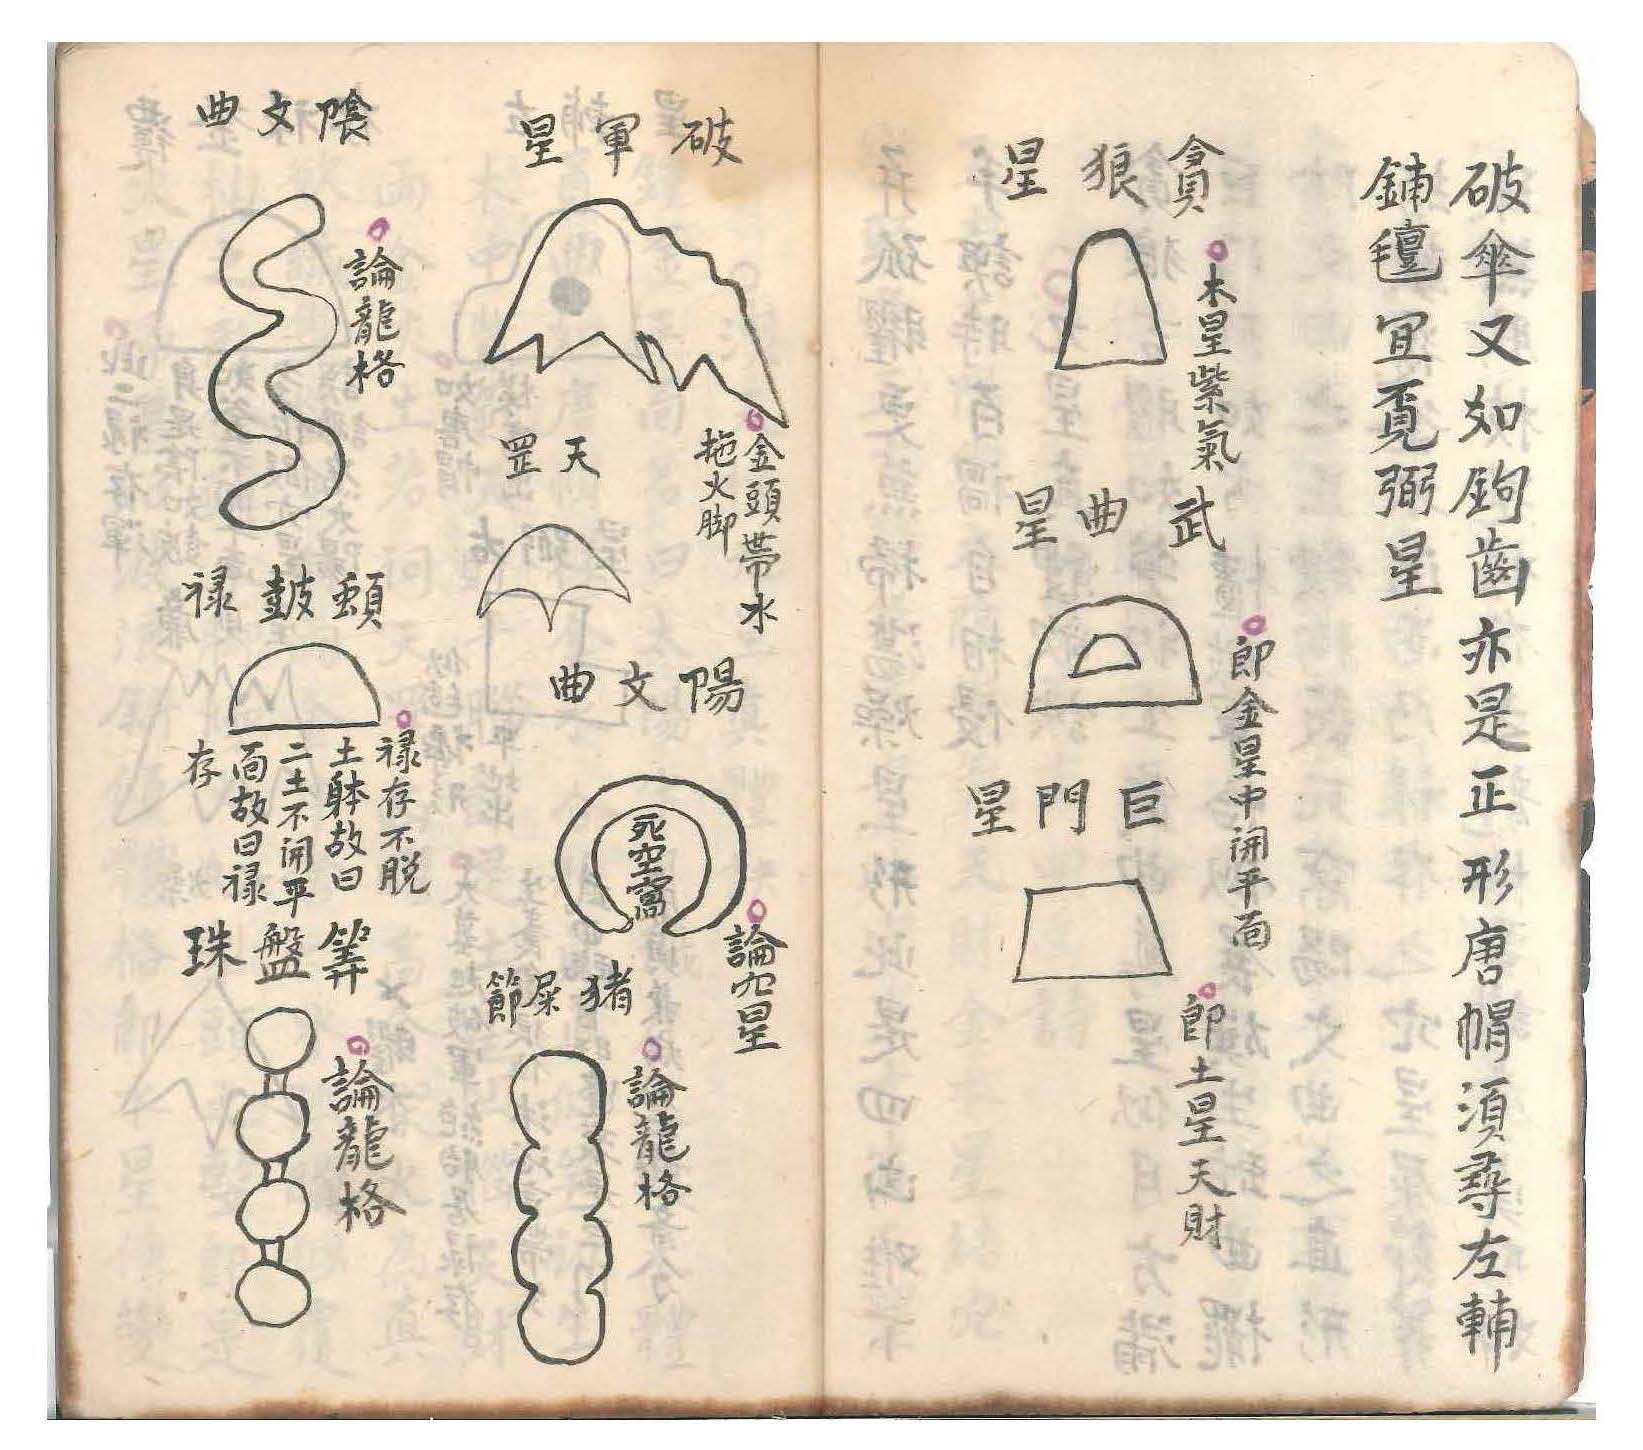 破傘又如鉤齒亦是正形唐帽須尋左輔
鋪氊宜覓弼星
貪狼星
木星紫氣
武曲星
郎金星中開平面
巨門星
郎土星天財
破軍星
金頭帶水
拖火脚
天罡
陽文曲
死空窩
論穴星
猪屎節
論龍格
陰文曲
論龍格
頪皷禄
禄存不脱
土躰故曰
二土不開平
面故曰禄
存
筭盤珠
論龍格